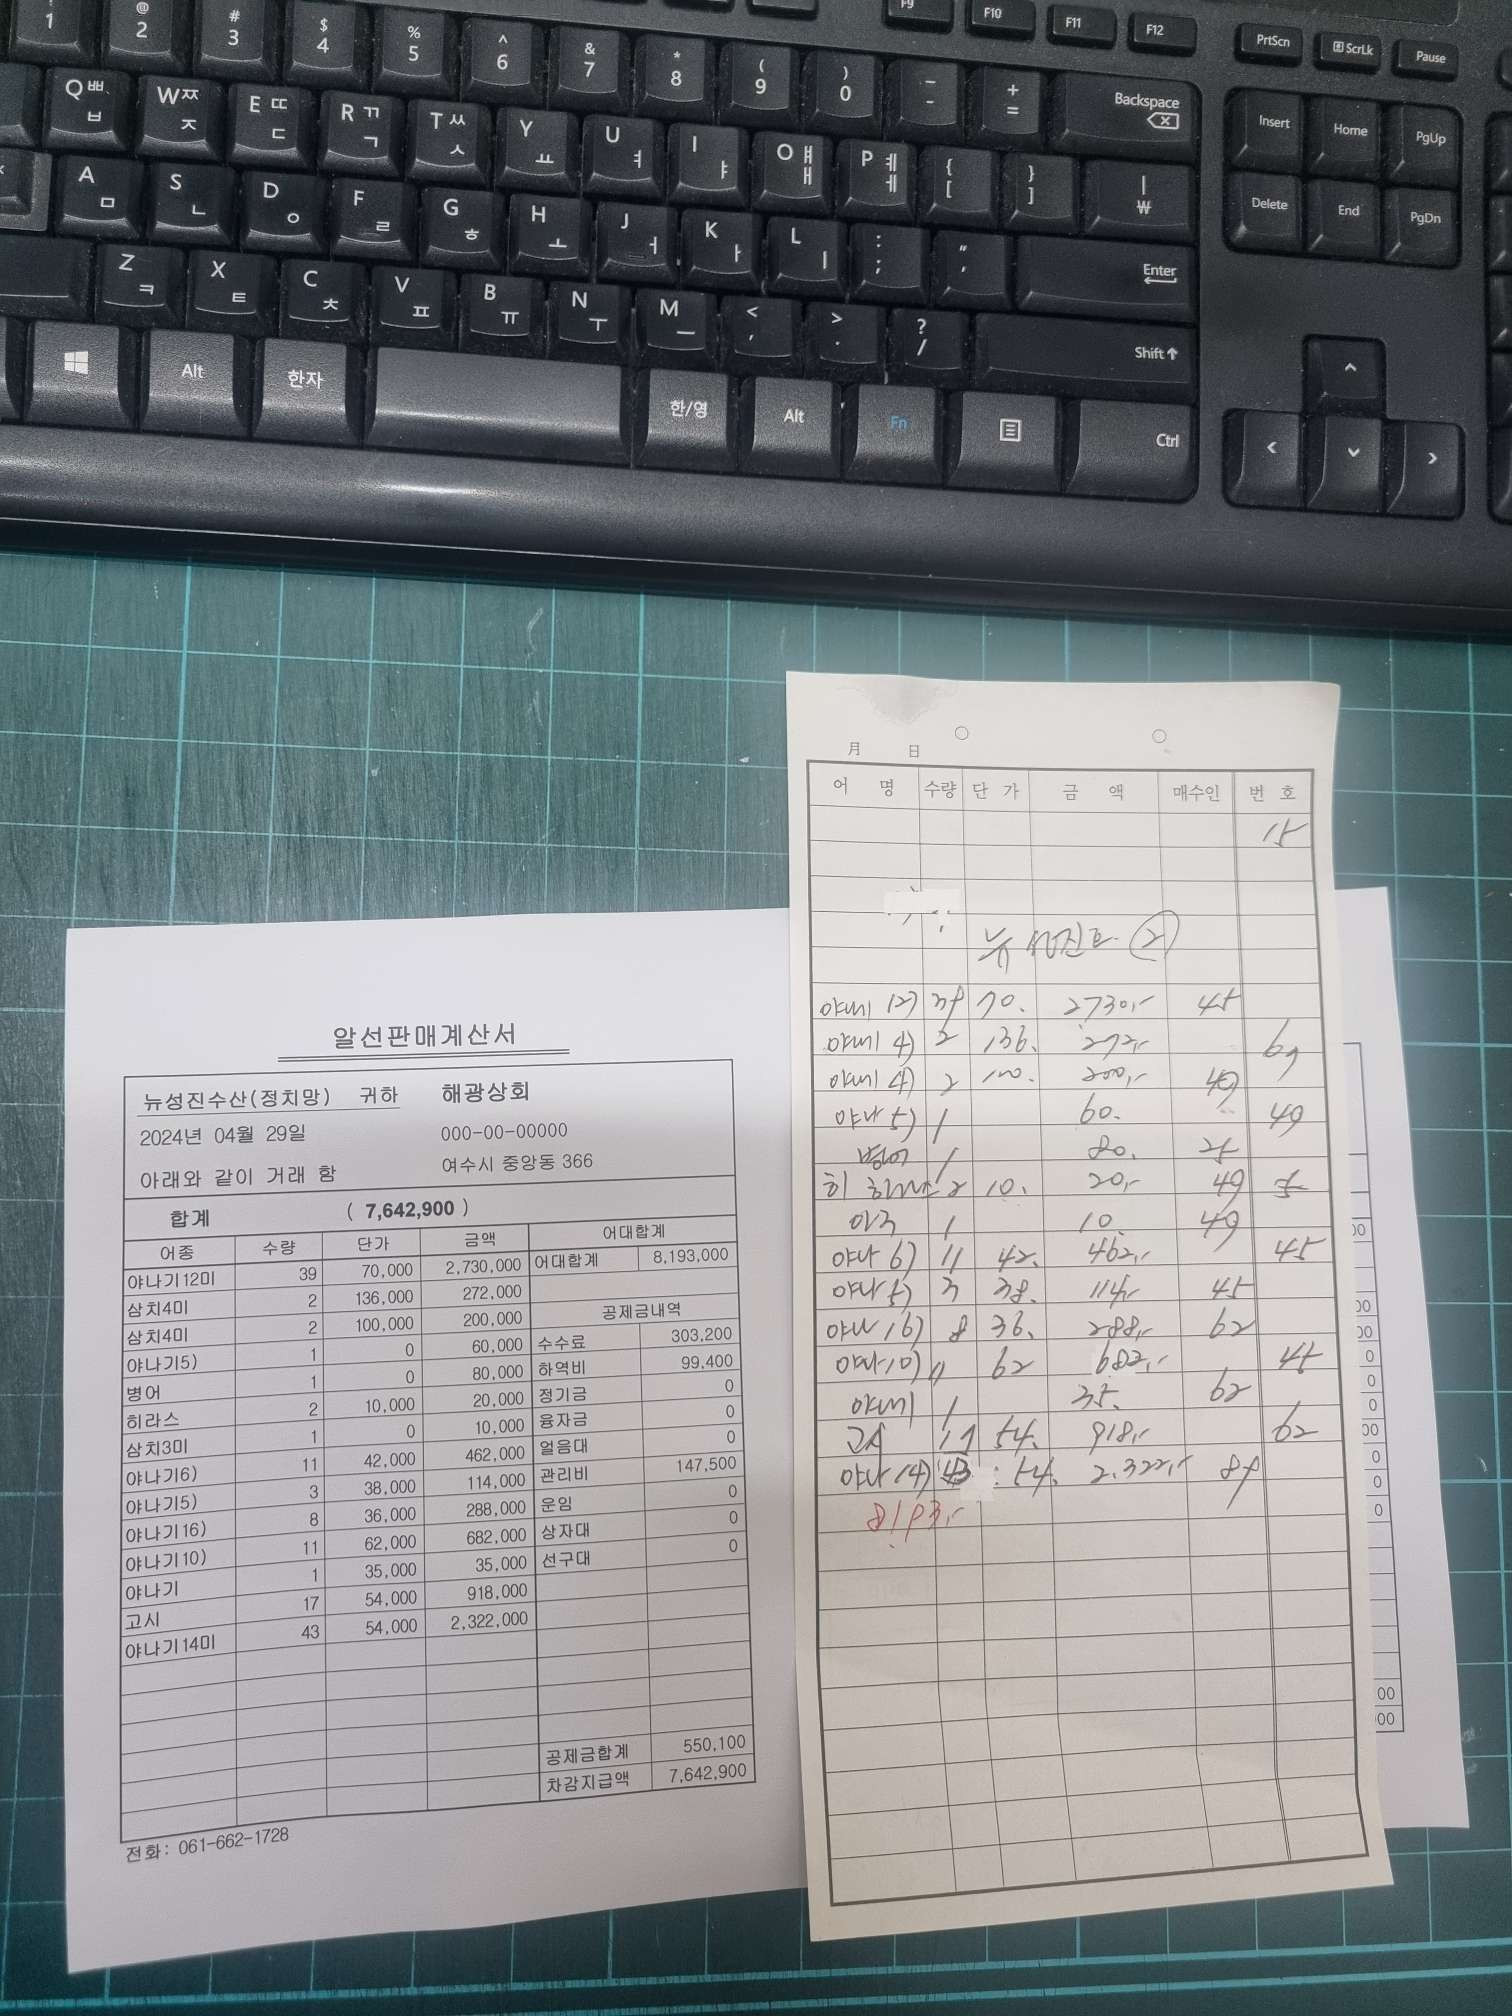 ! 1 @ 2 # 3 $ 4 % 5 ^ 6 & 7 * 8 ( 9 ) 0 - + = Backspace
F9 F10 F11 F12 PrtScn ScrLk Pause
Q ㅃ ㅂ W ㅉ ㅈ E ㄸ ㄷ R ㄲ ㄱ T ㅆ ㅅ Y ㅛ U ㅕ I ㅑ O ㅒ ㅐ P ㅖ ㅔ { [ } ] | ₩
Insert Home PgUp
A ㅁ S ㄴ D ㅇ F ㄹ G ㅎ H ㅗ J ㅓ K ㅏ L ㅣ : ; " ' Enter
Delete End PgDn
Z ㅋ X ㅌ C ㅊ V ㅍ B ㅠ N ㅜ M ㅡ < , > . ? / Shift
Alt 한자 한/영 Alt Fn Ctrl
알선판매계산서
뉴성진수산(정치망) 귀하 해광상회
2024년 04월 29일 000-00-00000
아래와 같이 거래 함 여수시 중앙동 366
합계 ( 7,642,900 )
어종 수량 단가 금액 어대합계
야나기12미 39 70,000 2,730,000 어대합계 8,193,000
삼치4미 2 136,000 272,000
삼치4미 2 100,000 200,000 공제금내역
야나기5) 1 0 60,000 수수료 303,200
병어 1 0 80,000 하역비 99,400
히라스 2 10,000 20,000 정기금 0
삼치3미 1 0 10,000 융자금 0
야나기6) 11 42,000 462,000 얼음대 0
야나기5) 3 38,000 114,000 관리비 147,500
야나기16) 8 36,000 288,000 운임 0
야나기10) 11 62,000 682,000 상자대 0
야나기 1 35,000 35,000 선구대 0
고시 17 54,000 918,000
야나기14미 43 54,000 2,322,000
공제금합계 550,100
차감지급액 7,642,900
전화: 061-662-1728
月 日
어 명 수량 단 가 금 액 매수인 번 호
15
뉴 성진호 ②
12) 70. 2730,- 45
4) 2 136. 272,- 69
4) 2 200,- 49
야나 5) 1 60. 49
병어 1 80.
2 10. 20,- 49
1 10. 49
야나 6) 11 42. 462,- 45
야나 5) 3 38. 114,- 45
야나 16) 8 36. 288,- 62
야나 10) 11 62 682,- 45
1 35. 62
고시 17 54. 918,- 62
야나 14) 43 54. 2.322,-
8193,-